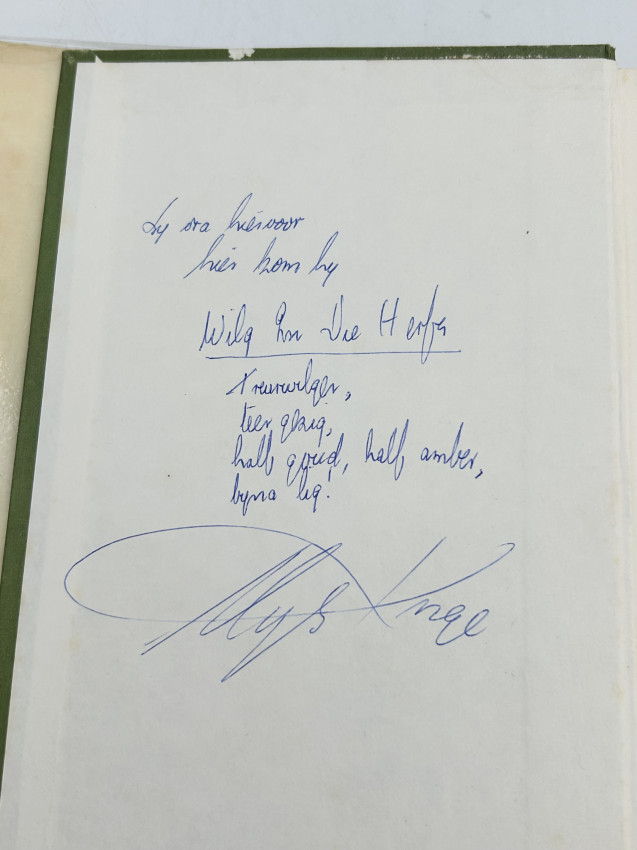 Jy vra hiervoor
hier kom hy
Wilg In Die Herfs
Treurwilger,
teer gesig,
half goud, half amber,
byna lig!
Uys Krige